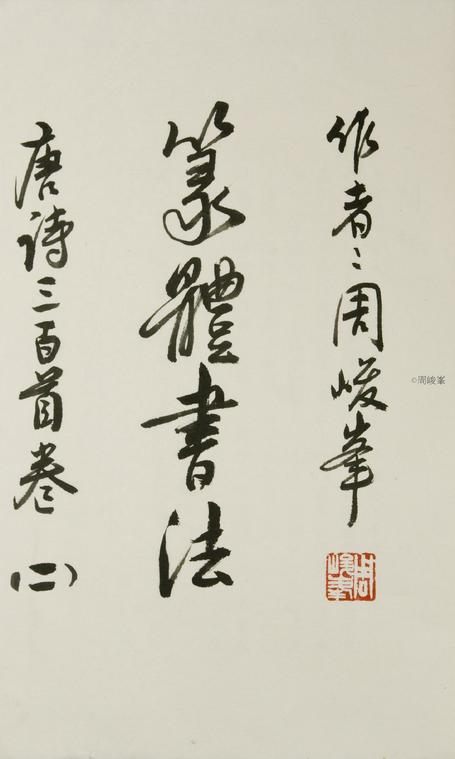 作者：周峻峯
篆體書法
唐詩三百首卷（二）
©周峻峯
周峻峯